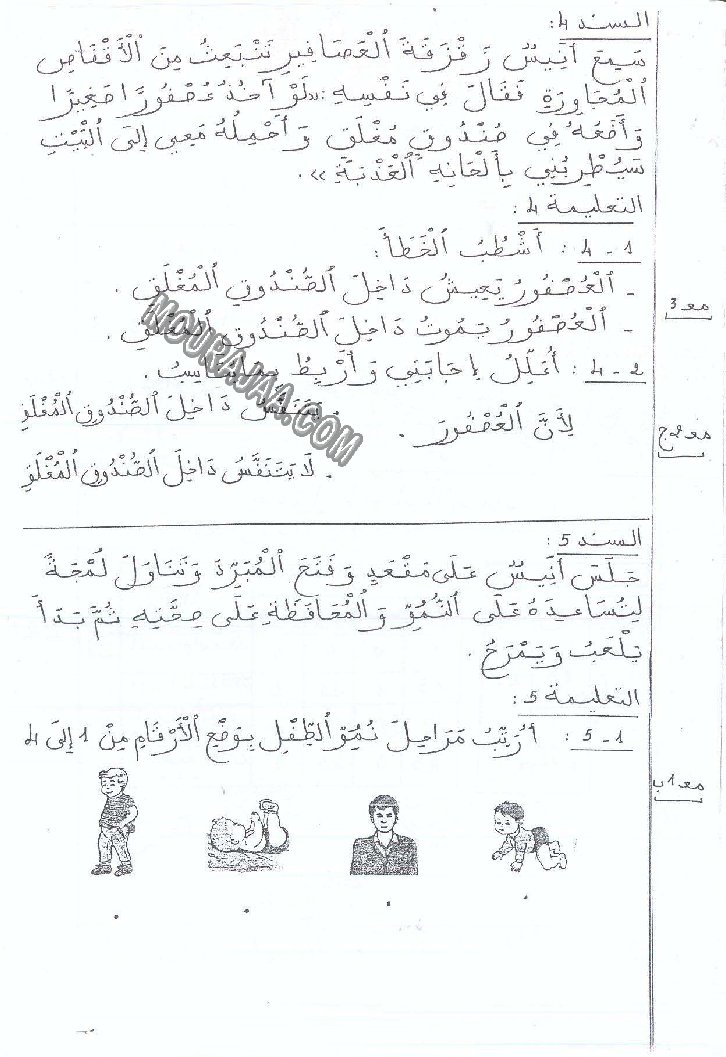 السند 4:
سَمِعَ أَنِيسٌ زَقْزَقَةَ الْعَصَافِيرِ تَنْبَعِثُ مِنَ الْأَقْفَاصِ
الْمُجَاوِرَةِ فَقَالَ فِي نَفْسِهِ :«لَوْ آخُذُ عُصْفُورًا صَغِيرًا
وَأَضَعُهُ فِي صُنْدُوقٍ مُغْلَقٍ وَأَحْمِلُهُ مَعِي إِلَى الْبَيْتِ
سَيُطْرِبُنِي بِأَلْحَانِهِ الْعَذْبَةِ».
التعليمة 4:
4 - 1 : أَشْطُبُ الْخَطَأَ:
- الْعُصْفُورُ يَعِيشُ دَاخِلَ الصُّنْدُوقِ الْمُغْلَقِ.
- الْعُصْفُورُ يَمُوتُ دَاخِلَ الصُّنْدُوقِ الْمُغْلَقِ.
مع 3
4 - 2 : أُعَلِّلُ إِجَابَتِي وَأَرْبِطُ بِمَا يُنَاسِبُ.
. يَتَنَفَّسُ دَاخِلَ الصُّنْدُوقِ الْمُغْلَقِ
لِأَنَّ الْعُصْفُورَ .
. لَا يَتَنَفَّسُ دَاخِلَ الصُّنْدُوقِ الْمُغْلَقِ
السند 5:
جَلَسَ أَنِيسٌ عَلَى مَقْعَدٍ وَفَتَحَ الْمُبَرِّدَ وَتَنَاوَلَ لُمْجَةً
لِتُسَاعِدَهُ عَلَى النُّمُوِّ وَالْمُحَافَظَةِ عَلَى صِحَّتِهِ ثُمَّ بَدَأَ
يَلْعَبُ وَيَمْرَحُ.
التعليمة 5:
5 - 1 : أُرَتِّبُ مَرَاحِلَ نُمُوِّ الطِّفْلِ بِوَضْعِ الْأَرْقَامِ مِنْ 1 إِلَى 4
مع 1 ب
MOURAJAA.COM